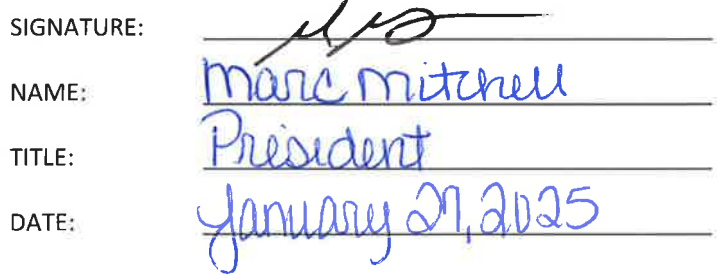 SIGNATURE:
NAME: Marc Mitchell
TITLE: President
DATE: January 27, 2025